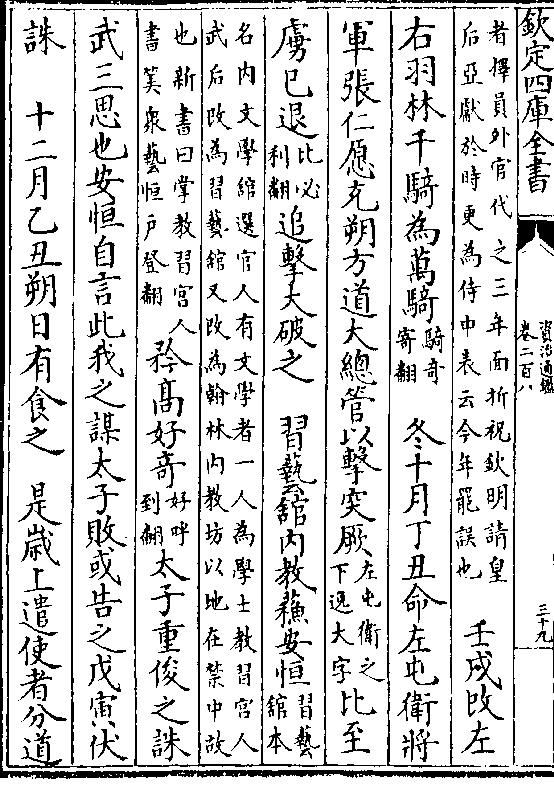 欽定四庫全書
資治通鑑
卷二百八
三十九
者擇員外官代之三年面折祝欽明請皇
后亞獻於時更為侍中表云今年罷誤也
壬戌改左
右羽林千騎為萬騎騎奇
寄翻
冬十月丁丑命左屯衛將
軍張仁愿充朔方道大總管以擊突厥左屯衛之
下逸大字
比至
虜已退比必
利翻
追擊大破之 習藝舘内教蘓安恒習藝
舘本
名内文學舘選官人有文學者一人為學士教習宫人
武后改為習藝舘又改為翰林内教坊以地在禁中故
也新書曰掌教習宫人
書筭衆藝恒户登翻
矜髙好竒好呼
到翻
太子重俊之誅
武三思也安恒自言此我之謀太子敗或告之戊寅伏
誅 十二月乙丑朔日有食之 是嵗上遣使者分道